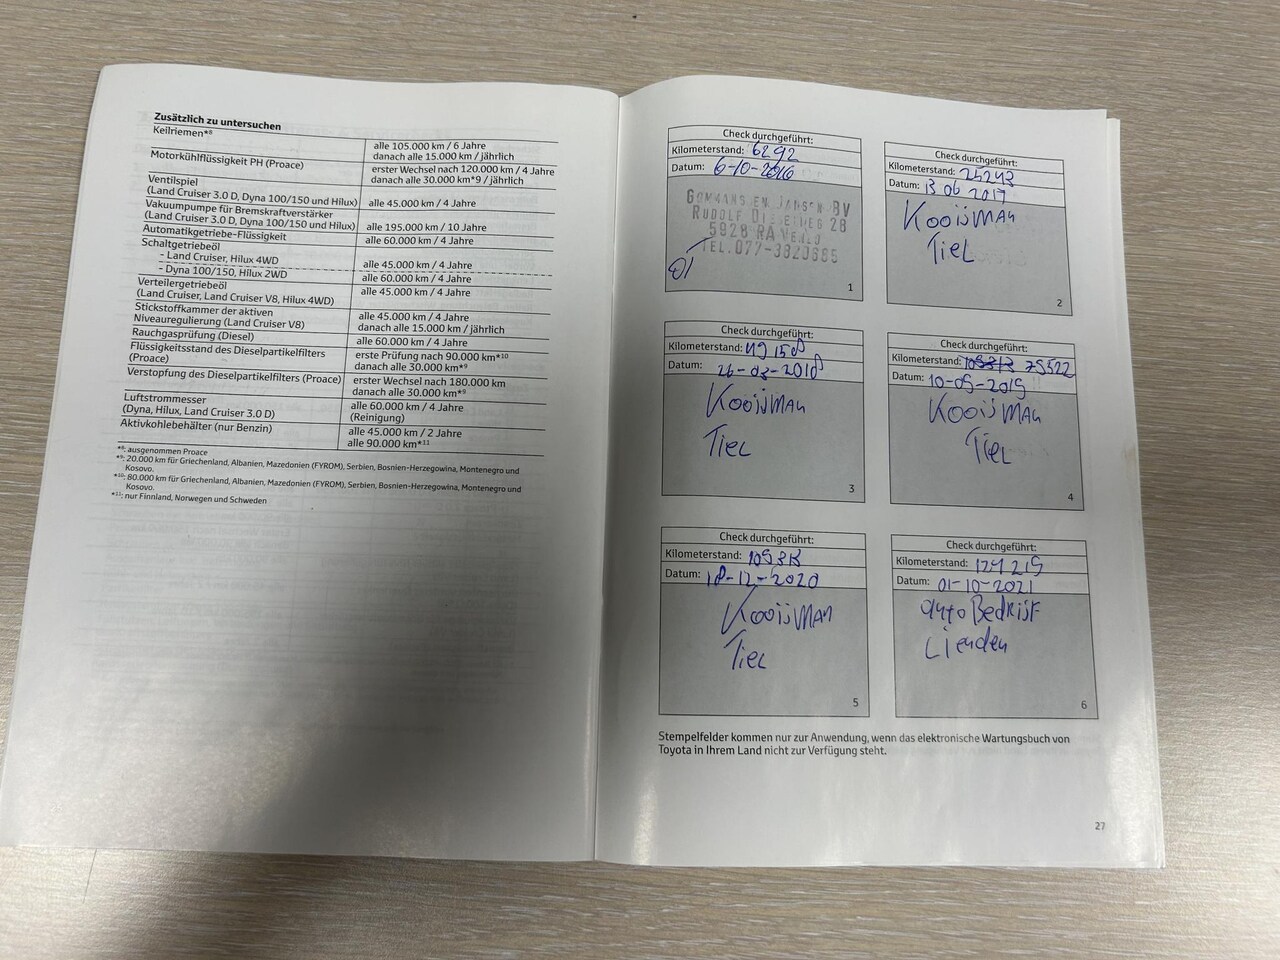 Zusätzlich zu untersuchen
Keilriemen*8
alle 105.000 km / 6 Jahre
danach alle 15.000 km / jährlich
Motorkühlflüssigkeit PH (Proace)
erster Wechsel nach 120.000 km / 4 Jahre
danach alle 30.000 km*9 / jährlich
Ventilspiel
(Land Cruiser 3.0 D, Dyna 100/150 und Hilux)
alle 45.000 km / 4 Jahre
Vakuumpumpe für Bremskraftverstärker
(Land Cruiser 3.0 D, Dyna 100/150 und Hilux)
alle 195.000 km / 10 Jahre
Automatikgetriebe-Flüssigkeit
alle 60.000 km / 4 Jahre
Schaltgetriebeöl
- Land Cruiser, Hilux 4WD
alle 45.000 km / 4 Jahre
- Dyna 100/150, Hilux 2WD
alle 60.000 km / 4 Jahre
Verteilergetriebeöl
(Land Cruiser, Land Cruiser V8, Hilux 4WD)
alle 45.000 km / 4 Jahre
Stickstoffkammer der aktiven
Niveauregulierung (Land Cruiser V8)
alle 45.000 km / 4 Jahre
danach alle 15.000 km / jährlich
Rauchgasprüfung (Diesel)
alle 60.000 km / 4 Jahre
Flüssigkeitsstand des Dieselpartikelfilters
(Proace)
erste Prüfung nach 90.000 km*10
danach alle 30.000 km*9
Verstopfung des Dieselpartikelfilters (Proace)
erster Wechsel nach 180.000 km
danach alle 30.000 km*9
Luftstrommesser
(Dyna, Hilux, Land Cruiser 3.0 D)
alle 60.000 km / 4 Jahre
(Reinigung)
Aktivkohlebehälter (nur Benzin)
alle 45.000 km / 2 Jahre
alle 90.000 km*11
*8: ausgenommen Proace
*9: 20.000 km für Griechenland, Albanien, Mazedonien (FYROM), Serbien, Bosnien-Herzegowina, Montenegro und
Kosovo.
*10: 80.000 km für Griechenland, Albanien, Mazedonien (FYROM), Serbien, Bosnien-Herzegowina, Montenegro und
Kosovo.
*11: nur Finnland, Norwegen und Schweden
Check durchgeführt:
Kilometerstand: 6292
Datum: 6-10-2016
GOMMANS EN JANSEN BV
RUDOLF DIESELWEG 28
5928 RA VENLO
TEL. 077-3820695
1
Check durchgeführt:
Kilometerstand: 25243
Datum: 13 06 2017
Kooijman
Tiel
2
Check durchgeführt:
Kilometerstand: 49158
Datum: 26-03-2018
Kooijman
Tiel
3
Check durchgeführt:
Kilometerstand: 75522
Datum: 10-05-2019
Kooijman
Tiel
4
Check durchgeführt:
Kilometerstand:
Datum: 18-12-2020
Kooijman
Tiel
5
Check durchgeführt:
Kilometerstand: 124215
Datum: 01-10-2021
autoBedrijf
Lienden
6
Stempelfelder kommen nur zur Anwendung, wenn das elektronische Wartungsbuch von
Toyota in Ihrem Land nicht zur Verfügung steht.
27